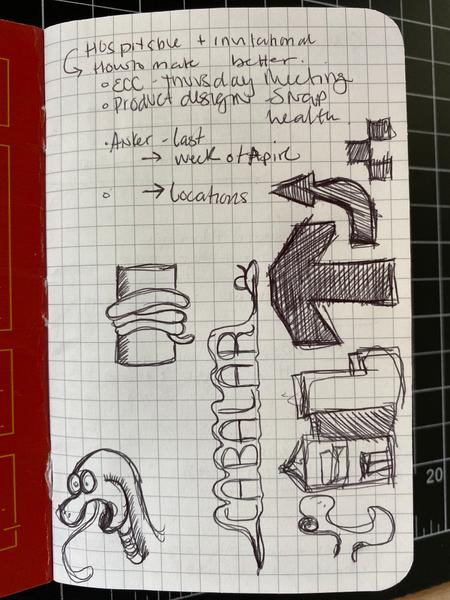 Hospitable + invitational
How to make better.
ECC - Thursday Meeting
Product designs - Snap
health
Anker - last
→ week of Apirl
→ locations
CABALAR
20